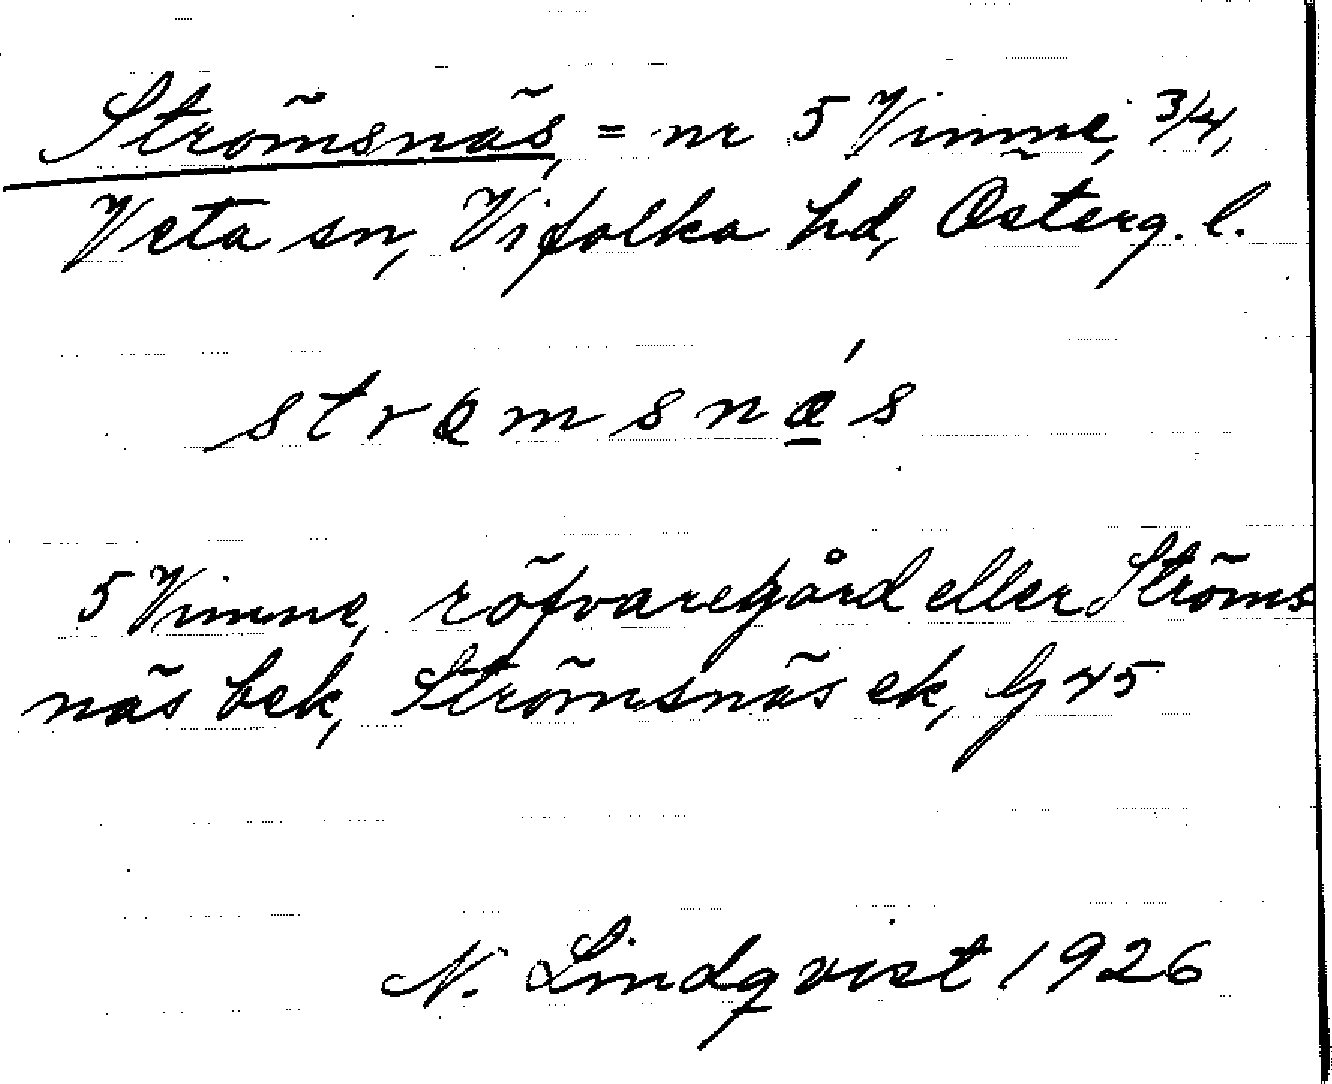 Strömsnäs, = nr 5 Vimne, 3/4,
Veta sn, Vifolka hd, Österg. l.
strɵmsnǽ̠s
5 Vimne, röfvaregård eller Ströms
näs bek, Strömsnäs ek, G 45
N. Lindqvist 1926